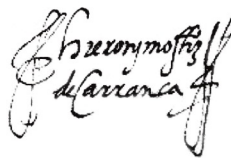 Hieronymo ssz
de Carrança